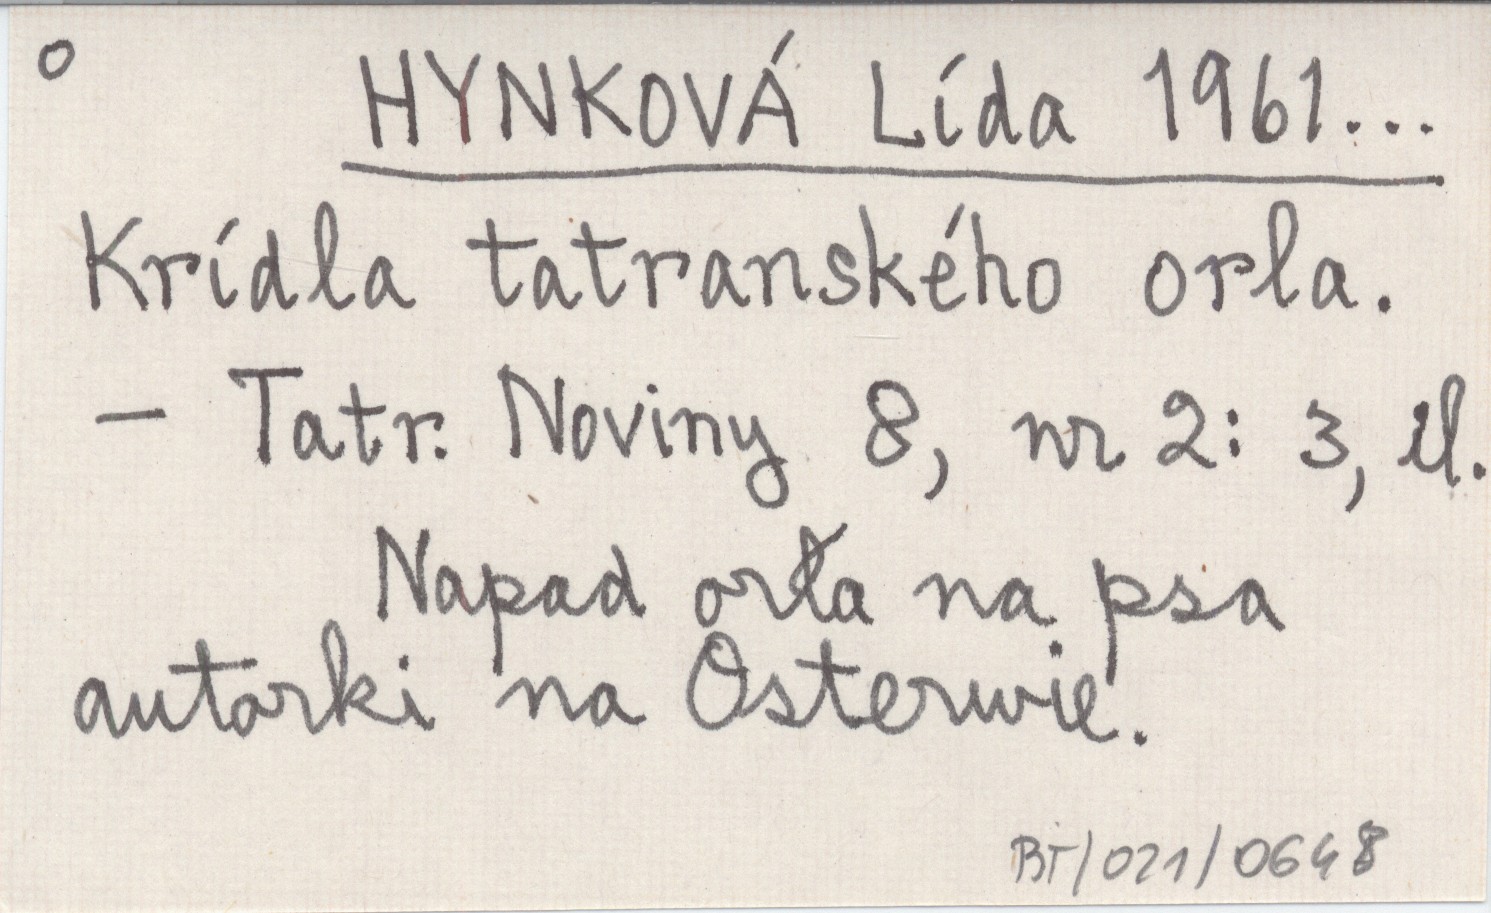 o HYNKOVÁ Lída 1961...
Krídla tatranského orla.
– Tatr. Noviny 8, nr 2: 3, il.
Napad orła na psa
autorki na Osterwie.
BT/021/0648